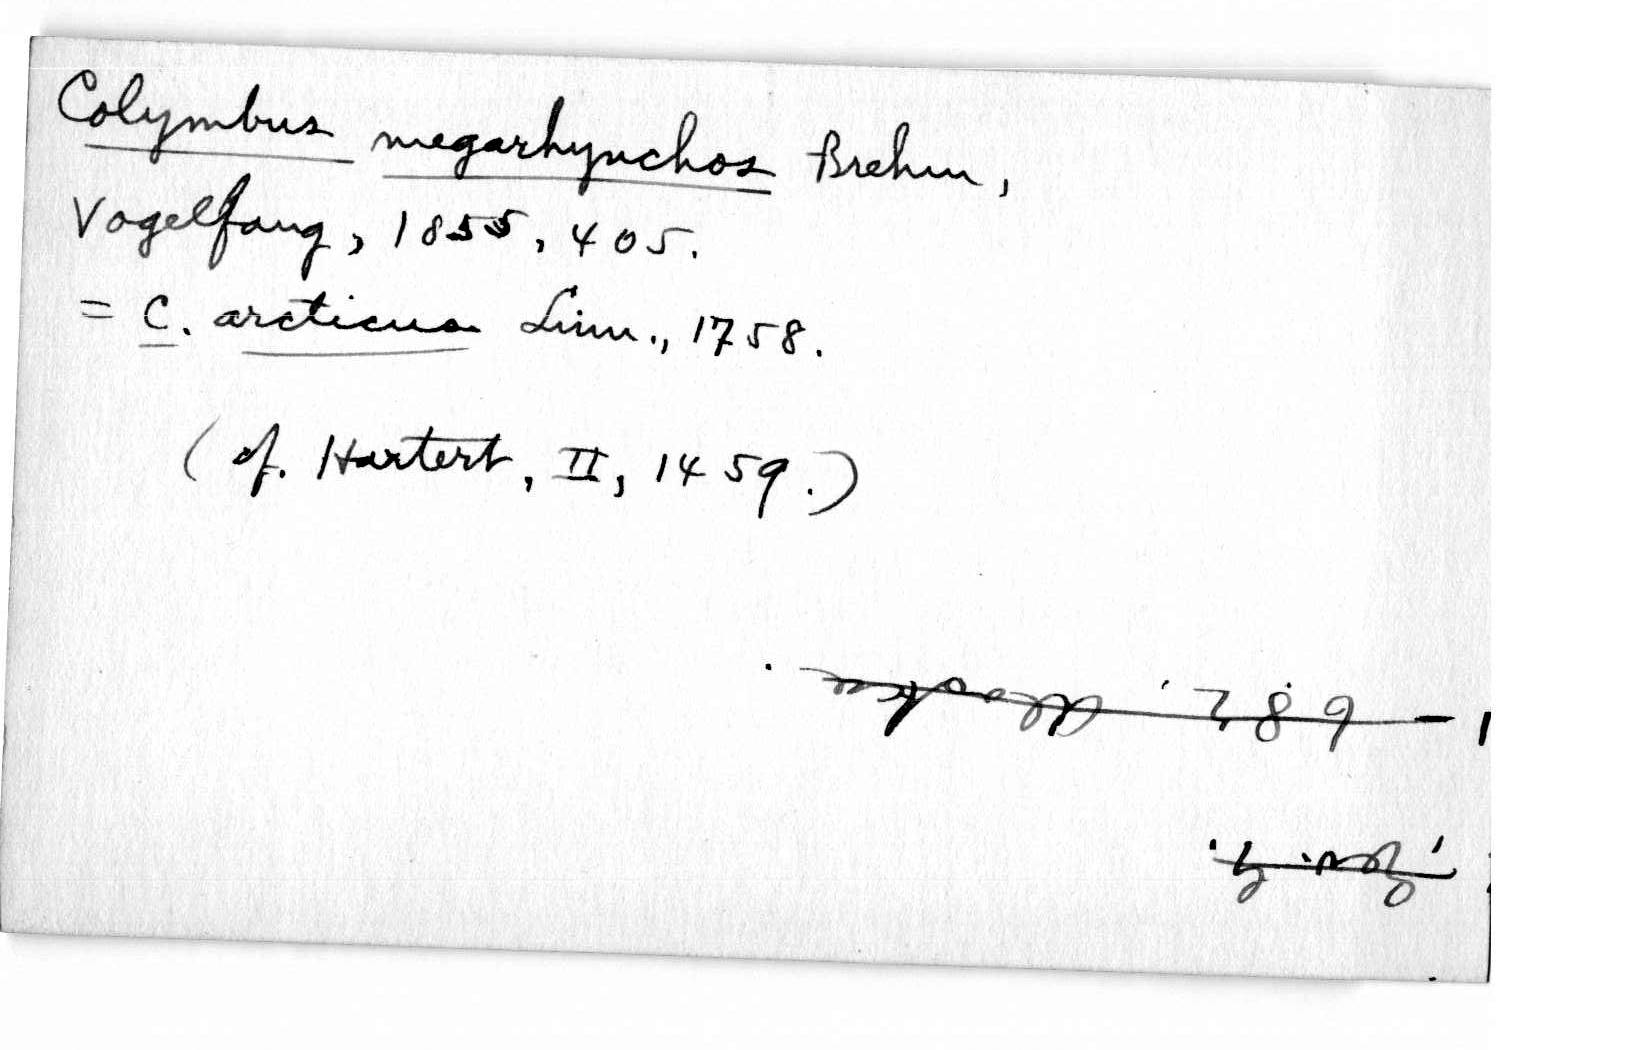 Colymbus megarhynchos Brehm,
Vogelfang, 1855, 405.
= C. arcticus Linn., 1758.
(cf. Hartert, II, 1459.)
1 – 687. Alaska